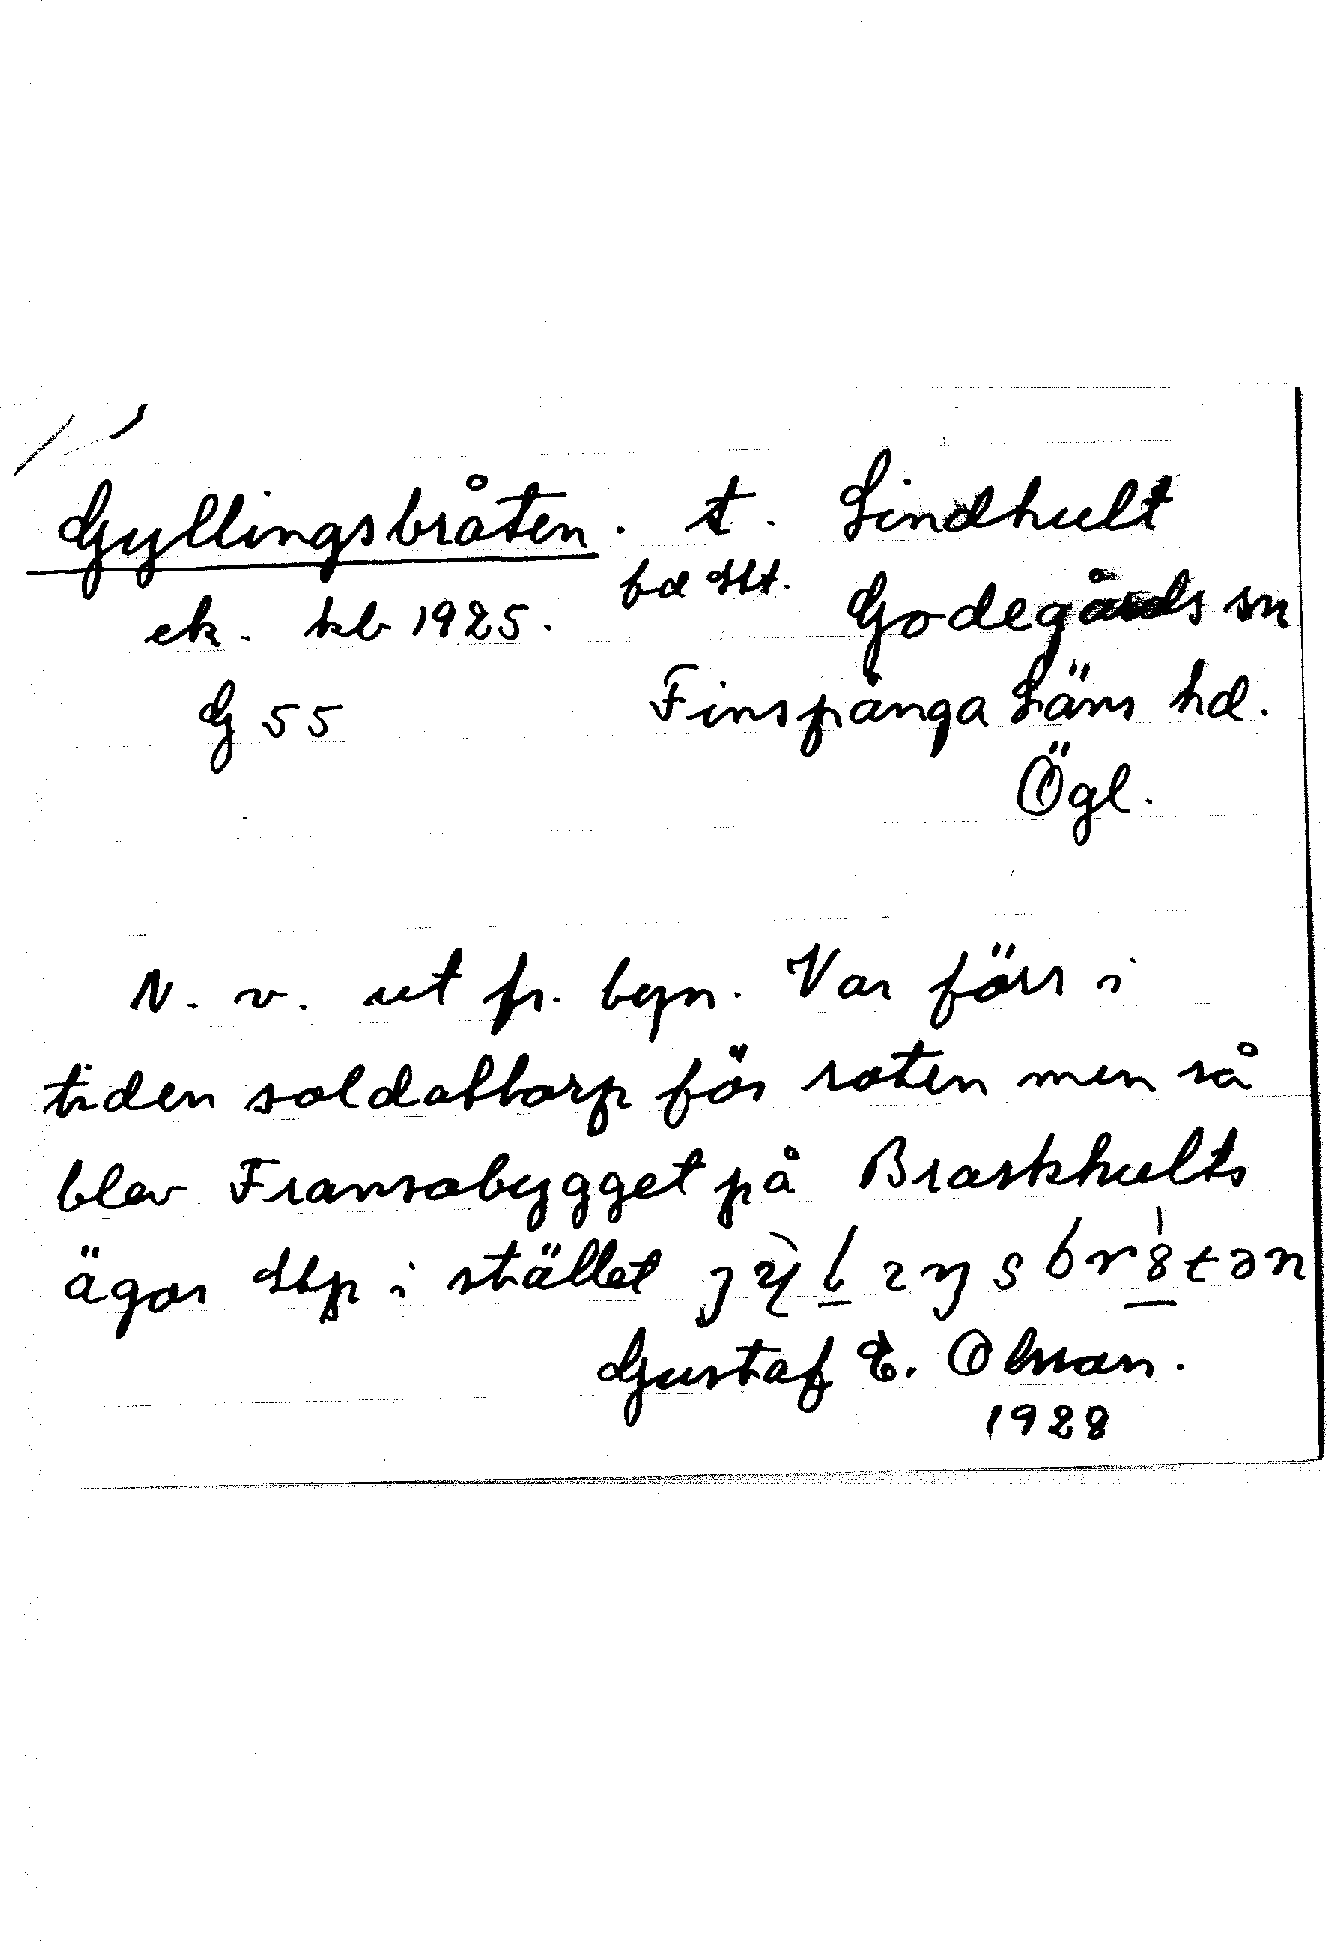 Gyllingsbråten. t. Lindhult
bd
ek. kb 1925. Godegårds sn
G 55 Finspånga Läns hd.
Ögl.
N. v. ut fr. byn. Var förr i
tiden soldattorp för roten men så
blev Fransabygget på Braskhults
ägor Stp i stället
Gustaf E. Olsson.
1928